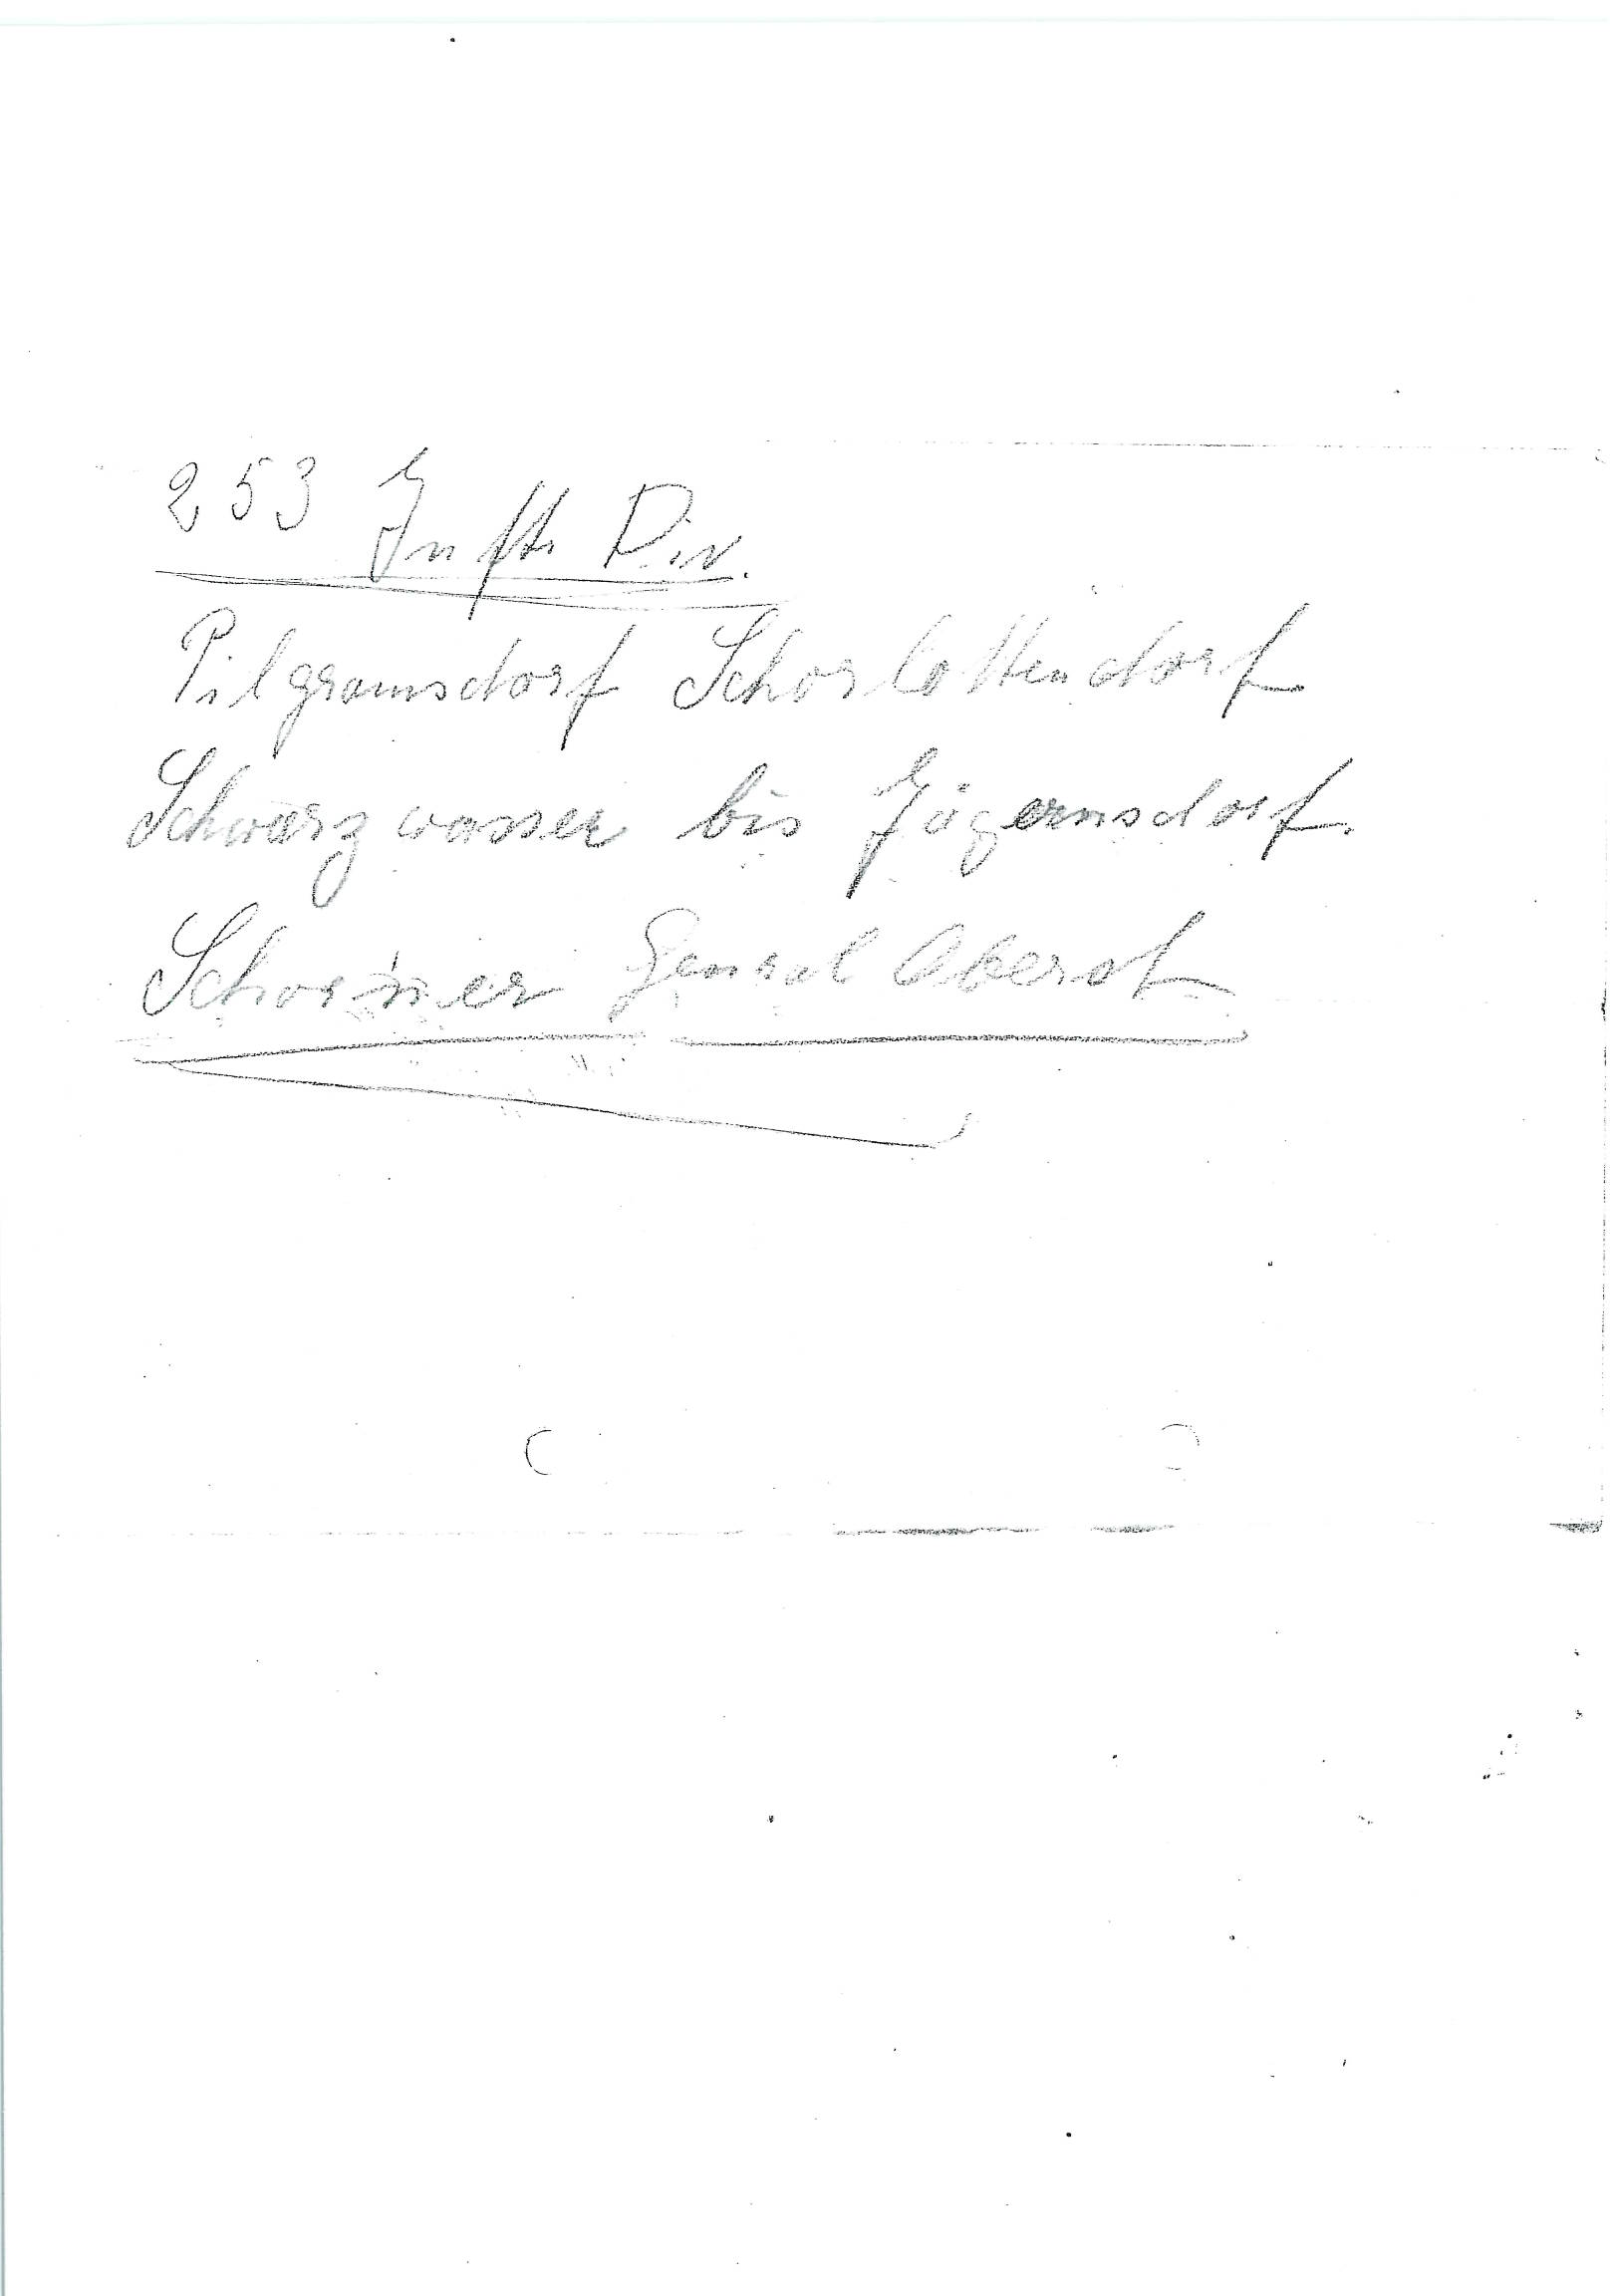 253 Inft. Div.
Pilgramsdorf Schorlottendorf
Schwarzwasser bis Jägernsdorf.
Schörner General Oberst